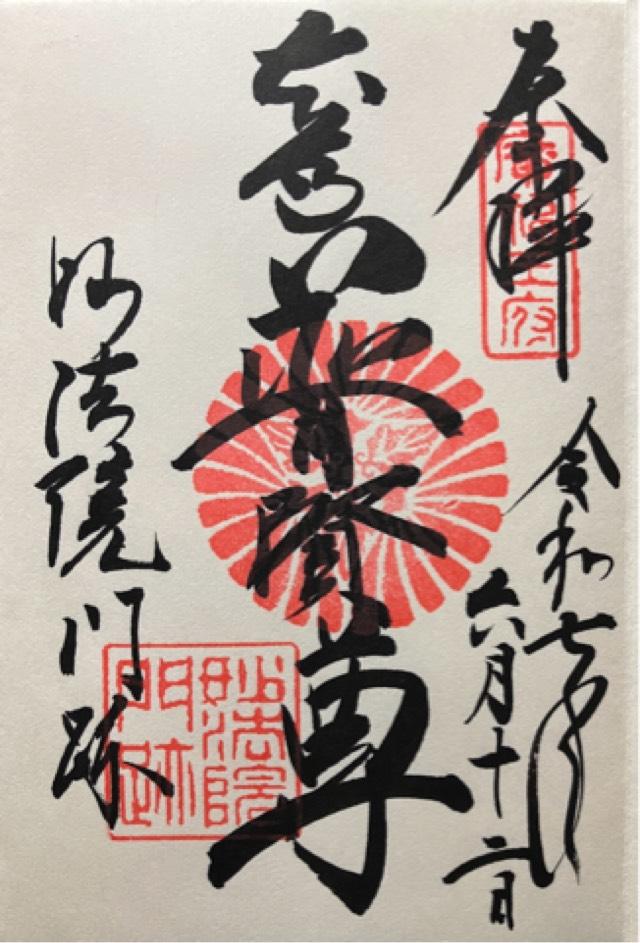 奉拝
令和七年
六月十二日
普賢尊
妙法院門跡
妙法院
門跡